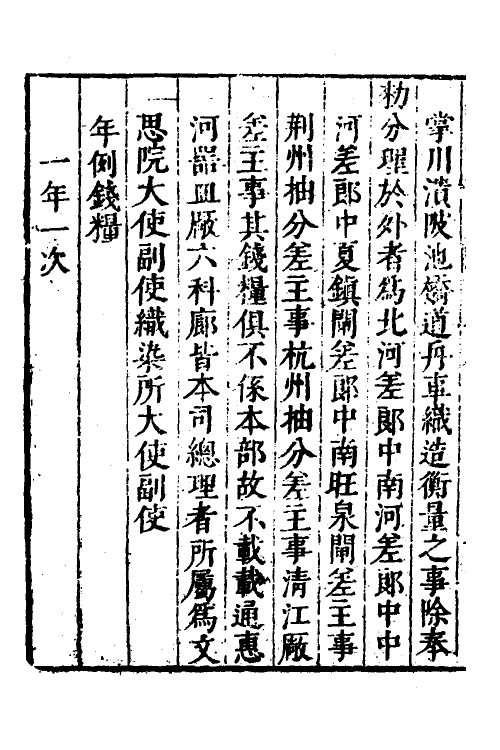 掌川瀆陂池橋道舟車織造衡量之事除奉
勑分理於外者爲北河差郎中南河差郎中中
河差郎中夏鎮閘差郎中南旺泉閘差主事
荆州抽分差主事杭州抽分差主事清江厰
差主事其錢糧俱不係本部故不載載通惠
河器皿厰六科廊皆本司總理者所屬爲文
思院大使副使織染所大使副使
年例錢糧
一年一次